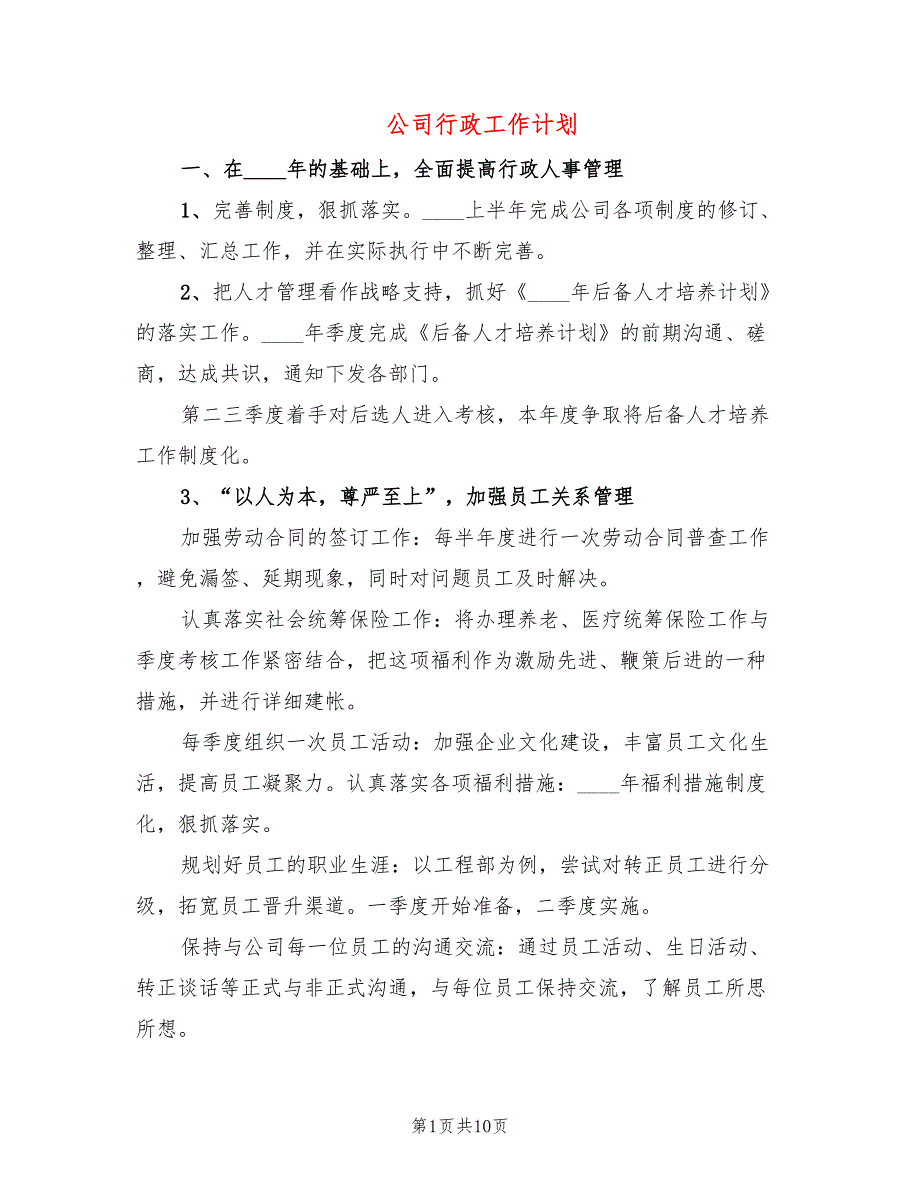 公司行政工作计划
一、在____年的基础上，全面提高行政人事管理
1、完善制度，狠抓落实。____上半年完成公司各项制度的修订、
整理、汇总工作，并在实际执行中不断完善。
2、把人才管理看作战略支持，抓好《____年后备人才培养计划》
的落实工作。____年季度完成《后备人才培养计划》的前期沟通、磋
商，达成共识，通知下发各部门。
第二三季度着手对后选人进入考核，本年度争取将后备人才培养
工作制度化。
3、“以人为本，尊严至上”，加强员工关系管理
加强劳动合同的签订工作：每半年度进行一次劳动合同普查工作
，避免漏签、延期现象，同时对问题员工及时解决。
认真落实社会统筹保险工作：将办理养老、医疗统筹保险工作与
季度考核工作紧密结合，把这项福利作为激励先进、鞭策后进的一种
措施，并进行详细建帐。
每季度组织一次员工活动：加强企业文化建设，丰富员工文化生
活，提高员工凝聚力。认真落实各项福利措施：____年福利措施制度
化，狠抓落实。
规划好员工的职业生涯：以工程部为例，尝试对转正员工进行分
级，拓宽员工晋升渠道。一季度开始准备，二季度实施。
保持与公司每一位员工的沟通交流：通过员工活动、生日活动、
转正谈话等正式与非正式沟通，与每位员工保持交流，了解员工所思
所想。
第1页共10页